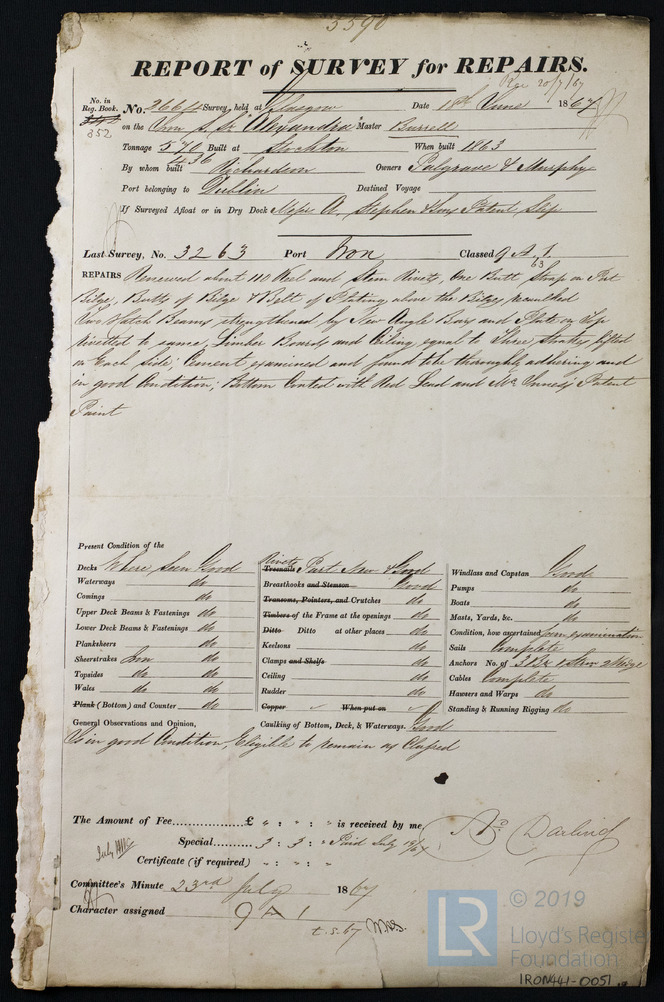 3390
REPORT of SURVEY for REPAIRS.
Rec 20/7/67
No. in Reg. Book.
352
No. 2664 Survey, held at Glasgow Date 18th June 1867
on the Iron S. Sr "Alexandra" Master Burrell
Tonnage 570 Built at Stockton When built 1863
436
By whom built Richardson Owners Palgrave & Murphy
Port belonging to Dublin Destined Voyage
If Surveyed Afloat or in Dry Dock Messrs A. Stephen & Sons Patent Slip
Last Survey, No. 3263 Port Iron Classed 9 A 1
63
REPAIRS Renewed about 110 Keel and Stem Rivets, One Butt Strap on Port
Bilge, Butts of Bilge & Belt of Plating above the Bilge, recaulked
Two Hatch Beams strengthened by New Angle Bars and Plate on Top
rivetted to same, Limber Boards and Ceiling equal to Three strakes lifted
on Each Side; Cement examined and found to be thoroughly adhering and
in good Condition; Bottom Coated with Red Lead and Mc Innes's Patent
Paint
Present Condition of the
Decks Where Seen Good
Waterways do
Comings do
Upper Deck Beams & Fastenings do
Lower Deck Beams & Fastenings do
Planksheers do
Sheerstrakes Iron do
Topsides do do
Wales do do
Plank (Bottom) and Counter do
Rivets
Treenails Part New & Good
Breasthooks and Stemson Good
Transoms, Pointers, and Crutches do
Timbers of the Frame at the openings do
Ditto Ditto at other places do
Keelsons do
Clamps and Shelfs do
Ceiling do
Rudder do
Copper When put on
Caulking of Bottom, Deck, & Waterways. Good
Windlass and Capstan Good
Pumps do
Boats do
Masts, Yards, &c. do
Condition, how ascertained from examination
Sails Complete
Anchors No. of 3 Br 1 Strm 2 Kedge
Cables Complete
Hawsers and Warps do
Standing & Running Rigging do
General Observations and Opinion,
Is in good Condition, Eligible to remain as Classed
The Amount of Fee £ " : " : " is received by me
Special 3 : 3 : " Paid July 19/67
Certificate (if required) " : " : "
Ad Darling
Committee's Minute 23rd July 1867
Character assigned 9 A 1
t.s. 67
© 2019
LR
Lloyd's Register
Foundation
IRON441-0051